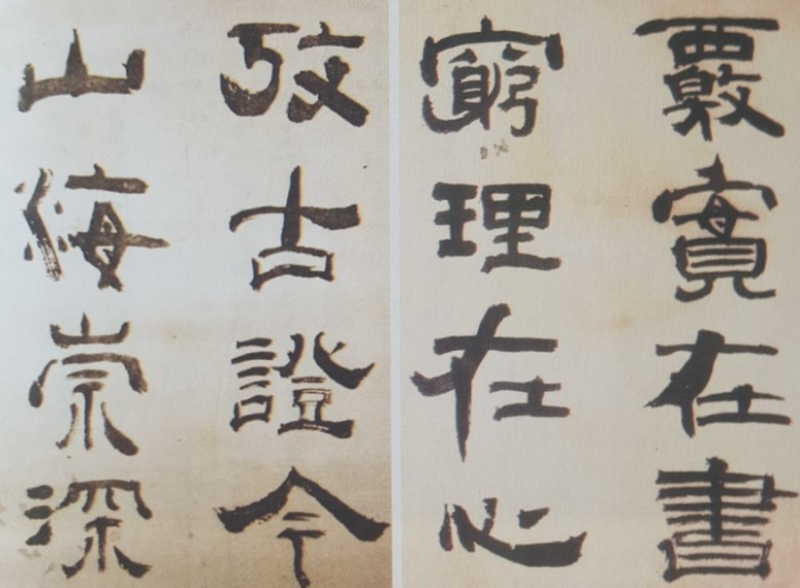 覈實在書
窮理在心
攷古證今
山海崇深